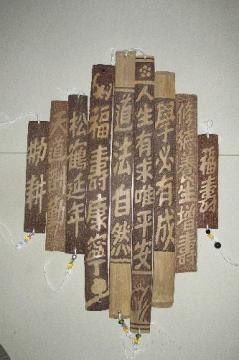 福壽
修緣養生增壽
學必有成
人生有求唯平安
道法自然
福壽康寧
松鶴延年
天道酬勤
勤耕